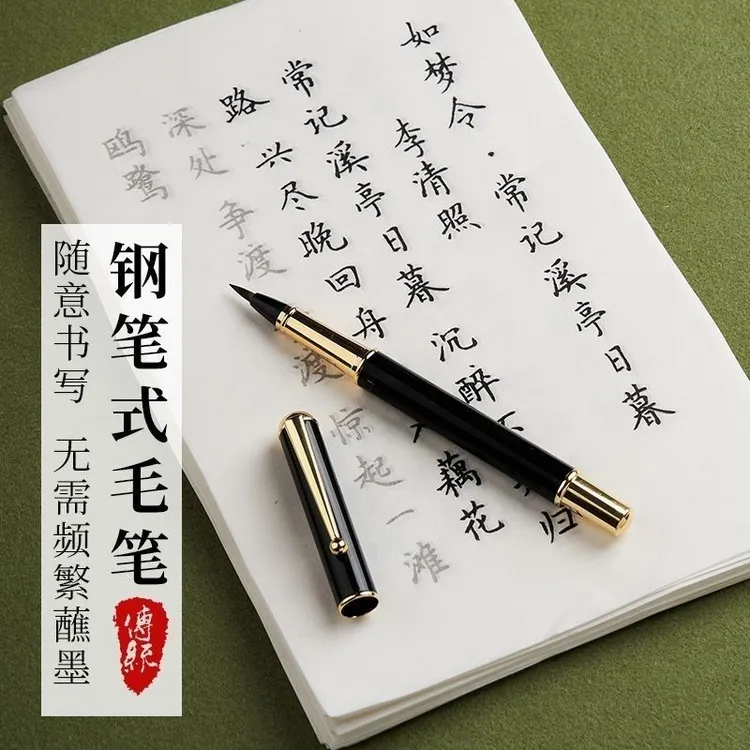 如梦令·常记溪亭日暮
李清照
常记溪亭日暮 沉醉不 归
路 兴尽晚回舟 藕花
深处 争渡 渡 惊起一滩
鸥鹭
钢笔式毛笔
傳統
随意书写 无需频繁蘸墨